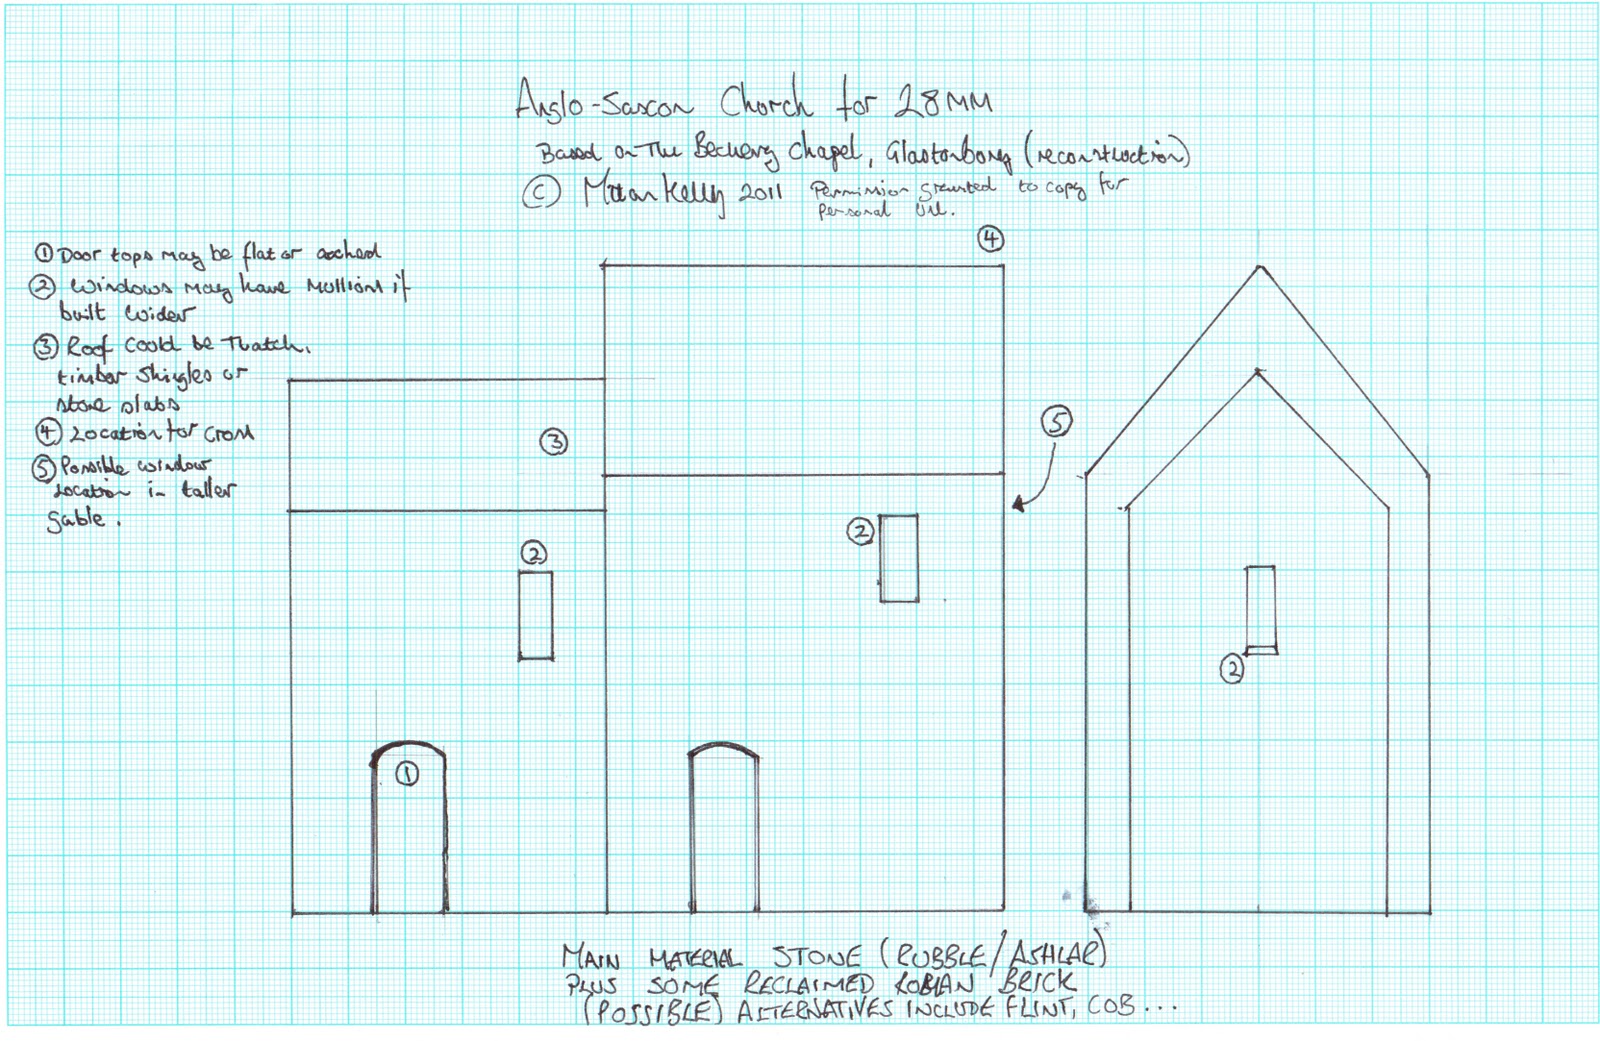 Anglo-Saxon Church for 28MM
Based on The Beckery Chapel, Glastonbury (reconstruction)
© Matt Kelly 2011 Permission granted to copy for
personal use.
④
① Door tops may be flat or arched
② Windows may have Mullions if
built wider
③ Roof could be Thatch,
timber Shingles or
stone slabs
④ Location for Cross
⑤ Possible window
location in taller
gable.
⑤
③
②
②
②
①
MAIN MATERIAL STONE (RUBBLE/ASHLAR)
PLUS SOME RECLAIMED ROMAN BRICK
(POSSIBLE) ALTERNATIVES INCLUDE FLINT, COB ...